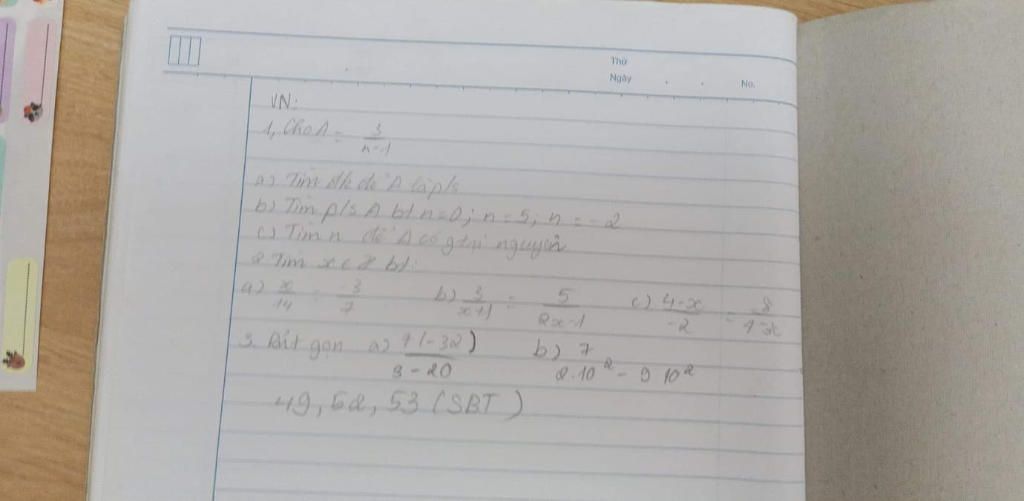 Thứ
Ngày . . No.
VN:
1, Cho A = 3/(n-1)
a) Tìm đk để A là p/s
b) Tìm p/s A bt n=0; n=5; n = -2
c) Tìm n để A có g trị nguyên
2 Tìm x ∈ Z bt:
a) x/14 = -3/7 b) 3/(x+1) = 5/(2x-1) c) (4-x)/-2 = -8/(4-x)
3. Rút gọn a) (-32)/20 b) 7 2.10² - 9 10²
49, 52, 53 (SBT)